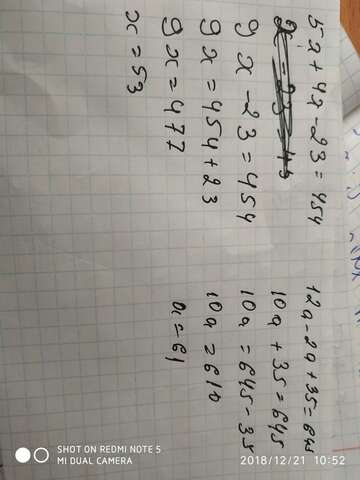 5x + 4x - 23 = 454
9x - 23 = 454
9x = 454 + 23
9x = 477
x = 53
12a - 2a + 35 = 645
10a + 35 = 645
10a = 645 - 35
10a = 610
a = 61
SHOT ON REDMI NOTE 5
MI DUAL CAMERA
2018/12/21 10:52